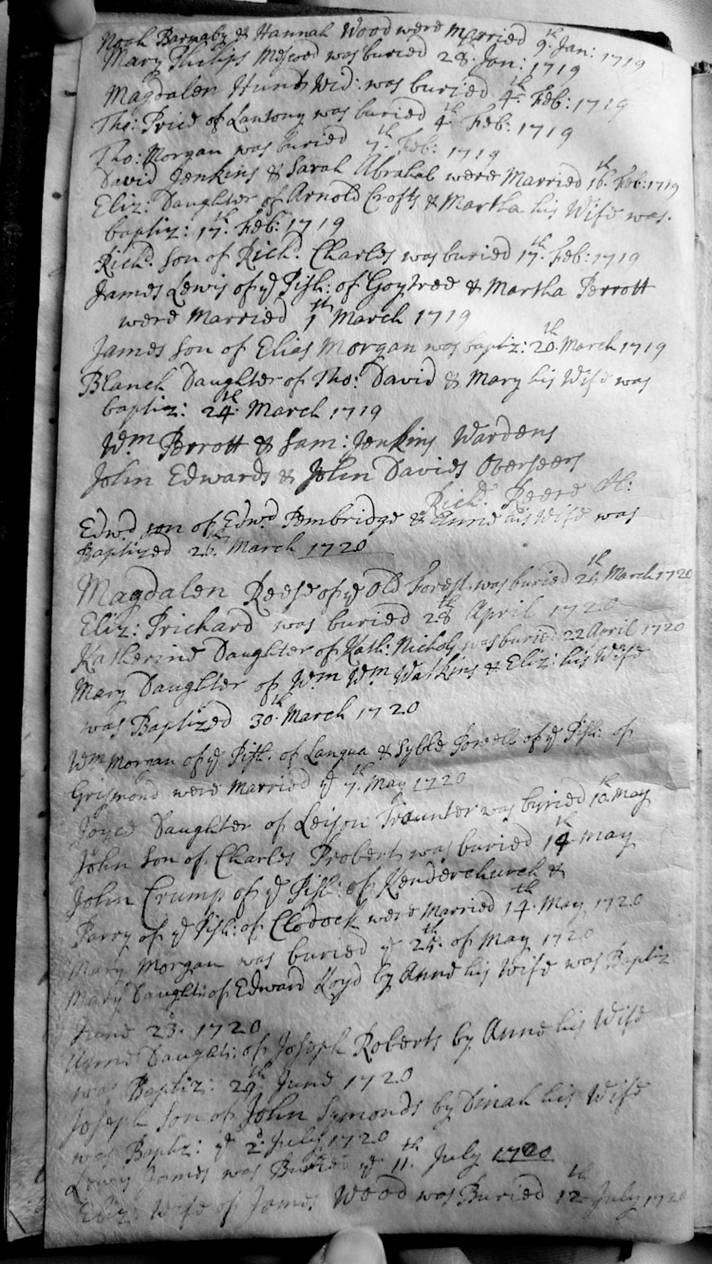 Noah Barnaby & Hannah Wood were Married 9th Jan: 1719
Mary Philips was buried 28th Jan: 1719
Magdalen Hunt Wid: was buried 4th Feb: 1719
Tho: Price of Lantony was buried 4th Feb: 1719
Tho: Morgan was buried 7th Feb: 1719
David Jenkins & Sarah Abrahal were Married 16th Feb: 1719
Eliz: Daughter of Arnold Crofts & Martha his Wife was
baptiz: 17th Feb: 1719
Richd. Son of Richd. Charles was buried 17th Feb: 1719
James Lewis of ye Pish: of Goytree & Martha Perrott
were Married 1st March 1719
James Son of Elias Morgan was baptiz: 20th March 1719
Blanch Daughter of Tho: David & Mary his Wife was
baptiz: 24th March 1719
Wm Perrott & Sam: Jenkins Wardens
John Edwards & John Davids Overseers
Richd.
Edwd son of Edwd Pembridge & Anne his Wife was
Baptized 26th March 1720
Magdalen Reese of ye Old Forest was buried March 1720
Eliz: Prichard was buried 28th April 1720
Katherine Daughter of Kath: Nichols was buried 22 April 1720
Mary Daughter of Wm Wm Watkins & Eliz: his Wife
was Baptized 30th March 1720
Wm Morgan of ye Pish. of Langua & Syble Powell of ye Pish: of
Grismond were Married ye 7th May 1720
Joyce Daughter of Leison Traunter was buried 10th May
John Son of Charles Probert was buried 14th May
John Crump of ye Pish: of Kenderchurch &
Parry of ye Pish: of Clodock were Married 14th May 1720
Mary Morgan was buried ye 24th of May 1720
Mary Daught: of Edward Loyd by Anne his Wife was Baptiz
June 23. 1720
Anne Daught: of Joseph Roberts by Anne his Wife
was Baptiz: 29th June 1720
Joseph Son of John Symonds by Dinah his Wife
was Baptz: ye 2d July 1720
James was Buried ye 11th July 1720
Eliz: Wife of James Wood was Buried 12th July 1720